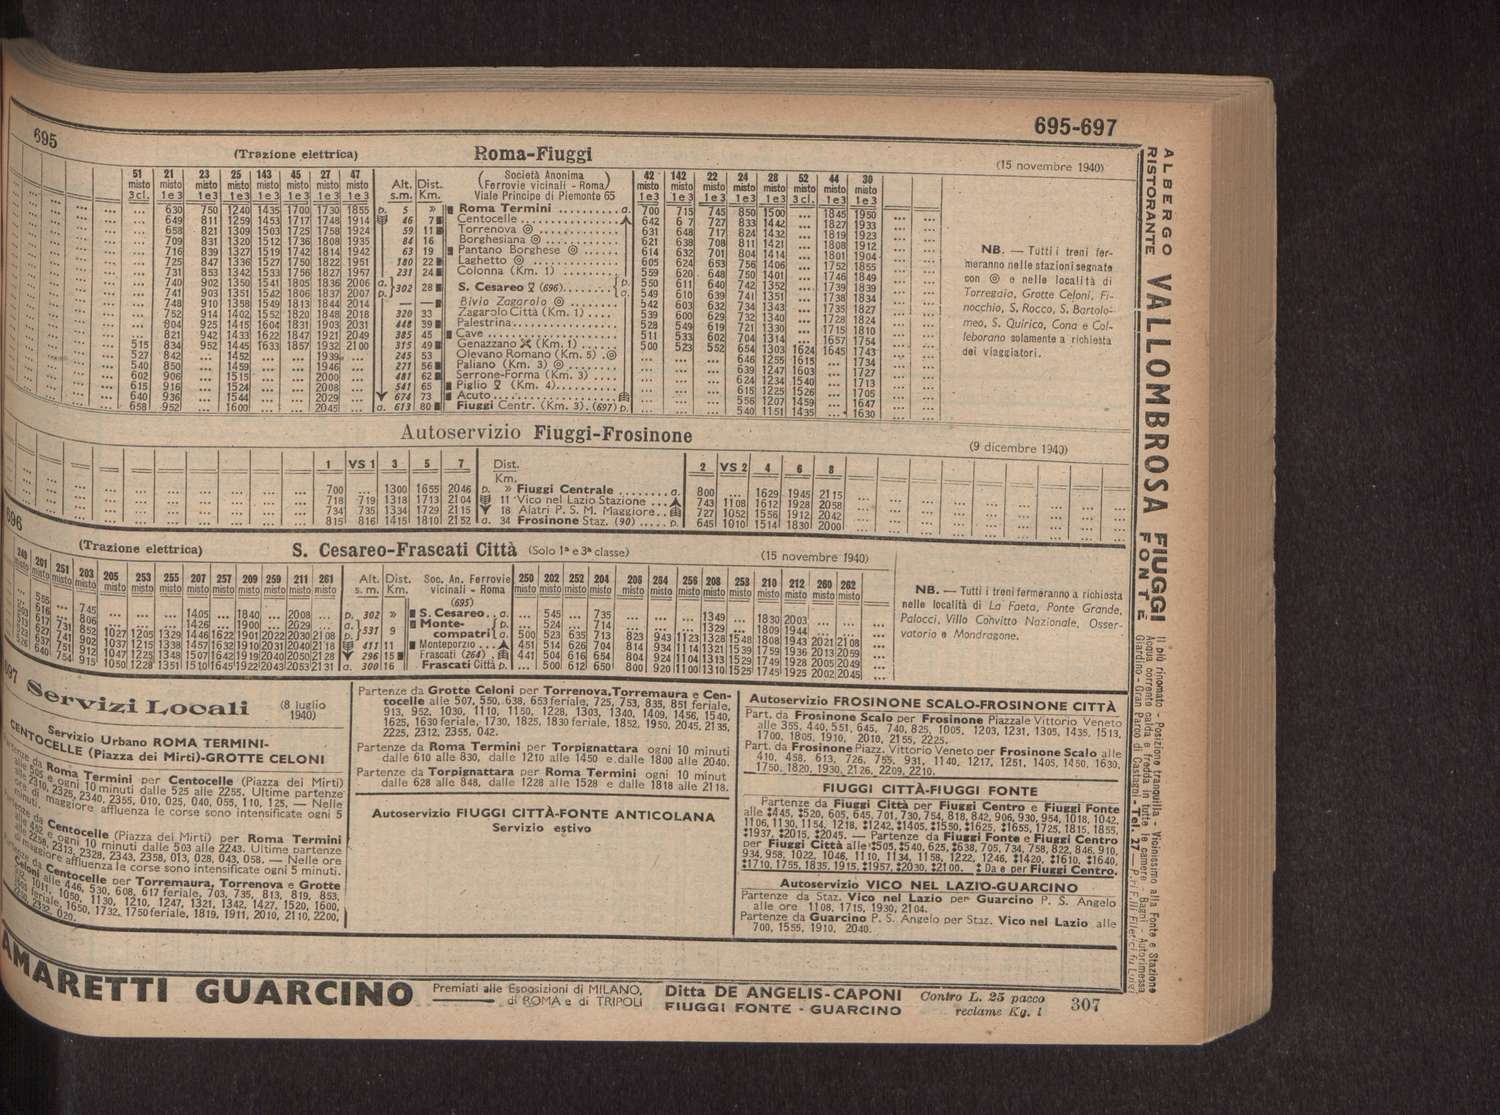 695
695-697
(Trazione elettrica)
Roma-Fiuggi
(15 novembre 1940)
51 21 23 25 143 45 27 47
misto misto misto misto misto misto misto misto
3 cl. 1 e 3 1 e 3 1 e 3 1 e 3 1 e 3 1 e 3 1 e 3
Alt. s.m. Dist. Km.
Società Anonima
(Ferrovie vicinali - Roma)
Viale Principe di Piemonte 65
42 142 22 24 28 52 44 30
misto misto misto misto misto misto misto misto
1 e 3 1 e 3 1 e 3 1 e 3 1 e 3 3 cl. 1 e 3 1 e 3
... 630 750 1240 1435 1700 1730 1855 p. 5 » Roma Termini a. 700 715 745 850 1500 ... 1845 1950
... 649 811 1259 1453 1717 1748 1914 46 7 Centocelle 642 6 7 727 833 1442 ... 1827 1933
... 658 821 1309 1503 1725 1758 1924 59 11 Torrenova ◎ 631 648 717 824 1432 ... 1819 1923
... 709 831 1320 1512 1736 1808 1935 84 16 Borghesiana ◎ 621 638 708 811 1421 ... 1808 1912
... 716 839 1327 1519 1742 1814 1942 63 19 Pantano Borghese ◎ 614 632 701 804 1414 ... 1801 1904
... 725 847 1336 1527 1750 1822 1951 180 22 Laghetto ◎ 605 624 653 756 1406 ... 1752 1855
... 731 853 1342 1533 1756 1827 1957 231 24 Colonna (Km. 1) 559 620 648 750 1401 ... 1746 1849
... 740 902 1350 1541 1805 1836 2006 a. 302 28 S. Cesareo (696) p. 550 611 640 742 1352 ... 1739 1839
... 741 903 1351 1542 1806 1837 2007 p. a. 549 610 639 741 1351 ... 1738 1834
... 748 910 1358 1549 1813 1844 2014 — — Bivio Zagarolo ◎ 542 603 632 734 1343 ... 1735 1827
... 752 914 1402 1552 1820 1848 2018 320 33 Zagarolo Città (Km. 1) 539 600 629 732 1340 ... 1728 1824
... 804 925 1415 1604 1831 1903 2031 448 39 Palestrina 528 549 619 721 1330 ... 1715 1810
... 821 942 1433 1622 1847 1921 2049 385 45 Cave 511 533 602 704 1314 ... 1657 1754
515 834 952 1445 1633 1857 1932 2100 315 49 Genazzano (Km. 1) 500 523 552 654 1303 1624 1645 1743
527 842 ... 1452 ... ... 1939 ... 245 53 Olevano Romano (Km. 5) ◎ ... ... ... 646 1255 1615 ... 1734
540 850 ... 1459 ... ... 1946 ... 271 56 Paliano (Km. 3) ◎ ... ... ... 639 1247 1603 ... 1727
602 906 ... 1515 ... ... 2000 ... 481 62 Serrone-Forma (Km. 3) ... ... ... 624 1234 1540 ... 1713
615 916 ... 1524 ... ... 2008 ... 541 65 Piglio (Km. 4) ... ... ... 615 1225 1526 ... 1705
640 936 ... 1544 ... ... 2029 ... 674 73 Acuto ... ... ... 556 1207 1459 ... 1647
658 952 ... 1600 ... ... 2045 ... a. 613 80 Fiuggi Centr. (Km. 3). (697) p. ... ... ... 540 1151 1435 ... 1630
NB. — Tutti i treni fer-
meranno nelle stazioni segnate
con ◎ e nelle località di
Torregaia, Grotte Celoni, Fi-
nocchio, S. Rocco, S. Bartolo-
meo, S. Quirico, Cona e Col-
leborano solamente a richiesta
dei viaggiatori.
Autoservizio Fiuggi-Frosinone
(9 dicembre 1940)
1 VS 1 3 5 7 Dist. Km. 2 VS 2 4 6 8
700 ... 1300 1655 2046 p. » Fiuggi Centrale a. 800 ... 1629 1945 2115
718 719 1318 1713 2104 11 Vico nel Lazio Stazione 743 1108 1612 1928 2058
734 735 1334 1729 2115 18 Alatri P. S. M. Maggiore 727 1052 1556 1912 2042
815 816 1415 1810 2152 a. 34 Frosinone Staz. (90) p. 645 1010 1514 1830 2000
696
(Trazione elettrica)
S. Cesareo-Frascati Città (Solo 1ª e 3ª classe)
(15 novembre 1940)
249 201 251 203 205 253 255 207 257 209 259 211 261
misto misto misto misto misto misto misto misto misto misto misto misto misto
Alt. s. m. Dist. Km.
Soc. An. Ferrovie
vicinali - Roma
(695)
250 202 252 204 206 254 256 208 258 210 212 260 262
misto misto misto misto misto misto misto misto misto misto misto misto misto
... 555 ... 745 ... ... ... 1405 ... 1840 ... 2008 ... p. 302 » S. Cesareo a. ... 545 ... 735 ... ... ... 1349 ... 1830 2003 ... ...
... 616 ... 806 ... ... ... 1426 ... 1900 ... 2029 ... a. 531 9 Monte- p. ... 524 ... 714 ... ... ... 1329 ... 1809 1944 ... ...
617 731 852 1027 1205 1329 1446 1622 1901 2022 2030 2108 p. compatri a. 500 523 635 713 823 943 1123 1328 1548 1808 1943 2021 2108
741 902 1037 1215 1338 1457 1632 1910 2031 2040 2118 411 11 Monteporzio 451 514 626 704 814 934 1114 1321 1539 1759 1936 2013 2059
751 912 1047 1225 1348 1507 1642 1919 2040 2050 2128 296 15 Frascati (264) 441 504 616 654 804 924 1104 1313 1529 1749 1928 2005 2049
640 754 915 1050 1228 1351 1510 1645 1922 2043 2053 2131 a. 300 16 Frascati Città p. ... 500 612 650 800 920 1100 1310 1525 1745 1925 2002 2045
NB. — Tutti i treni fermeranno a richiesta
nelle località di La Faeta, Ponte Grande,
Palocci, Villa Convitto Nazionale, Osser-
vatorio e Mondragone.
697 Servizi Locali
(8 luglio 1940)
Servizio Urbano ROMA TERMINI-
CENTOCELLE (Piazza dei Mirti)-GROTTE CELONI
Roma Termini per Centocelle (Piazza dei Mirti)
ogni 10 minuti dalle 525 alle 2255. Ultime partenze
2310, 2325, 2340, 2355, 010, 025, 040, 055, 110, 125. — Nelle
ore di maggiore affluenza le corse sono intensificate ogni 5
minuti.
Centocelle (Piazza dei Mirti) per Roma Termini
ogni 10 minuti dalle 503 alle 2243. Ultime partenze
2258, 2313, 2328, 2343, 2358, 013, 028, 043, 058. — Nelle ore
maggiore affluenza le corse sono intensificate ogni 5 minuti.
Centocelle per Torremaura, Torrenova e Grotte
alle 446, 530, 608, 617 feriale, 703, 735, 813, 819, 853,
1011, 1050, 1130, 1210, 1247, 1321, 1342, 1427, 1520, 1600,
feriale, 1650, 1732, 1750 feriale, 1819, 1911, 2010, 2110, 2200,
2332, 020.
Partenze da Grotte Celoni per Torrenova, Torremaura e Cen-
tocelle alle 507, 550, 638, 653 feriale, 725, 753, 835, 851 feriale,
913, 952, 1030, 1110, 1150, 1228, 1303, 1340, 1409, 1456, 1540,
1625, 1630 feriale, 1730, 1825, 1830 feriale, 1852, 1950, 2045, 2135,
2225, 2312, 2355, 042.
Partenze da Roma Termini per Torpignattara ogni 10 minuti
dalle 610 alle 830, dalle 1210 alle 1450 e dalle 1800 alle 2040.
Partenze da Torpignattara per Roma Termini ogni 10 minut
dalle 628 alle 848, dalle 1228 alle 1528 e dalle 1818 alle 2118.
Autoservizio FIUGGI CITTÀ-FONTE ANTICOLANA
Servizio estivo
Autoservizio FROSINONE SCALO-FROSINONE CITTÀ
Part. da Frosinone Scalo per Frosinone Piazzale Vittorio Veneto
alle 355, 440, 551, 645, 740, 825, 1005, 1203, 1231, 1305, 1435, 1513,
1700, 1805, 1910, 2010, 2155, 2225.
Part. da Frosinone Piazz. Vittorio Veneto per Frosinone Scalo alle
410, 458, 613, 726, 755, 931, 1140, 1217, 1251, 1405, 1450, 1630,
1750, 1820, 1930, 2126, 2209, 2210.
FIUGGI CITTÀ-FIUGGI FONTE
Partenze da Fiuggi Città per Fiuggi Centro e Fiuggi Fonte
alle ‡445, ‡520, 605, 645, 701, 730, 754, 818, 842, 906, 930, 954, 1018, 1042,
1106, 1130, 1154, 1218, ‡1242, ‡1405, ‡1550, ‡1625, ‡1655, 1725, 1815, 1855,
‡1937, ‡2015, ‡2045. — Partenze da Fiuggi Fonte e Fiuggi Centro
per Fiuggi Città alle ‡505, ‡540, 625, ‡638, 705, 734, 758, 822, 846, 910,
934, 958, 1022, 1046, 1110, 1134, 1158, 1222, 1246, ‡1420, ‡1610, ‡1640,
‡1710, 1755, 1835, 1915, ‡1957, ‡2030, ‡2100. ‡ Da e per Fiuggi Centro.
Autoservizio VICO NEL LAZIO-GUARCINO
Partenze da Staz. Vico nel Lazio per Guarcino P. S. Angelo
alle ore 1108, 1715, 1930, 2104.
Partenze da Guarcino P. S. Angelo per Staz. Vico nel Lazio alle
700, 1555, 1910, 2040.
AMARETTI GUARCINO
Premiati alle Esposizioni di MILANO,
di ROMA e di TRIPOLI
Ditta DE ANGELIS-CAPONI
FIUGGI FONTE - GUARCINO
Contro L. 25 pacco
reclame Kg. 1
307
ALBERGO RISTORANTE VALLOMBROSA FIUGGI FONTE
Il più rinomato - Posizione tranquilla - Vicinissimo alla Fonte e Stazione
Acqua corrente calda e fredda in tutte le camere - Bagni - Autorimessa
Giardino - Gran Parco di Castagni - Tel. 27